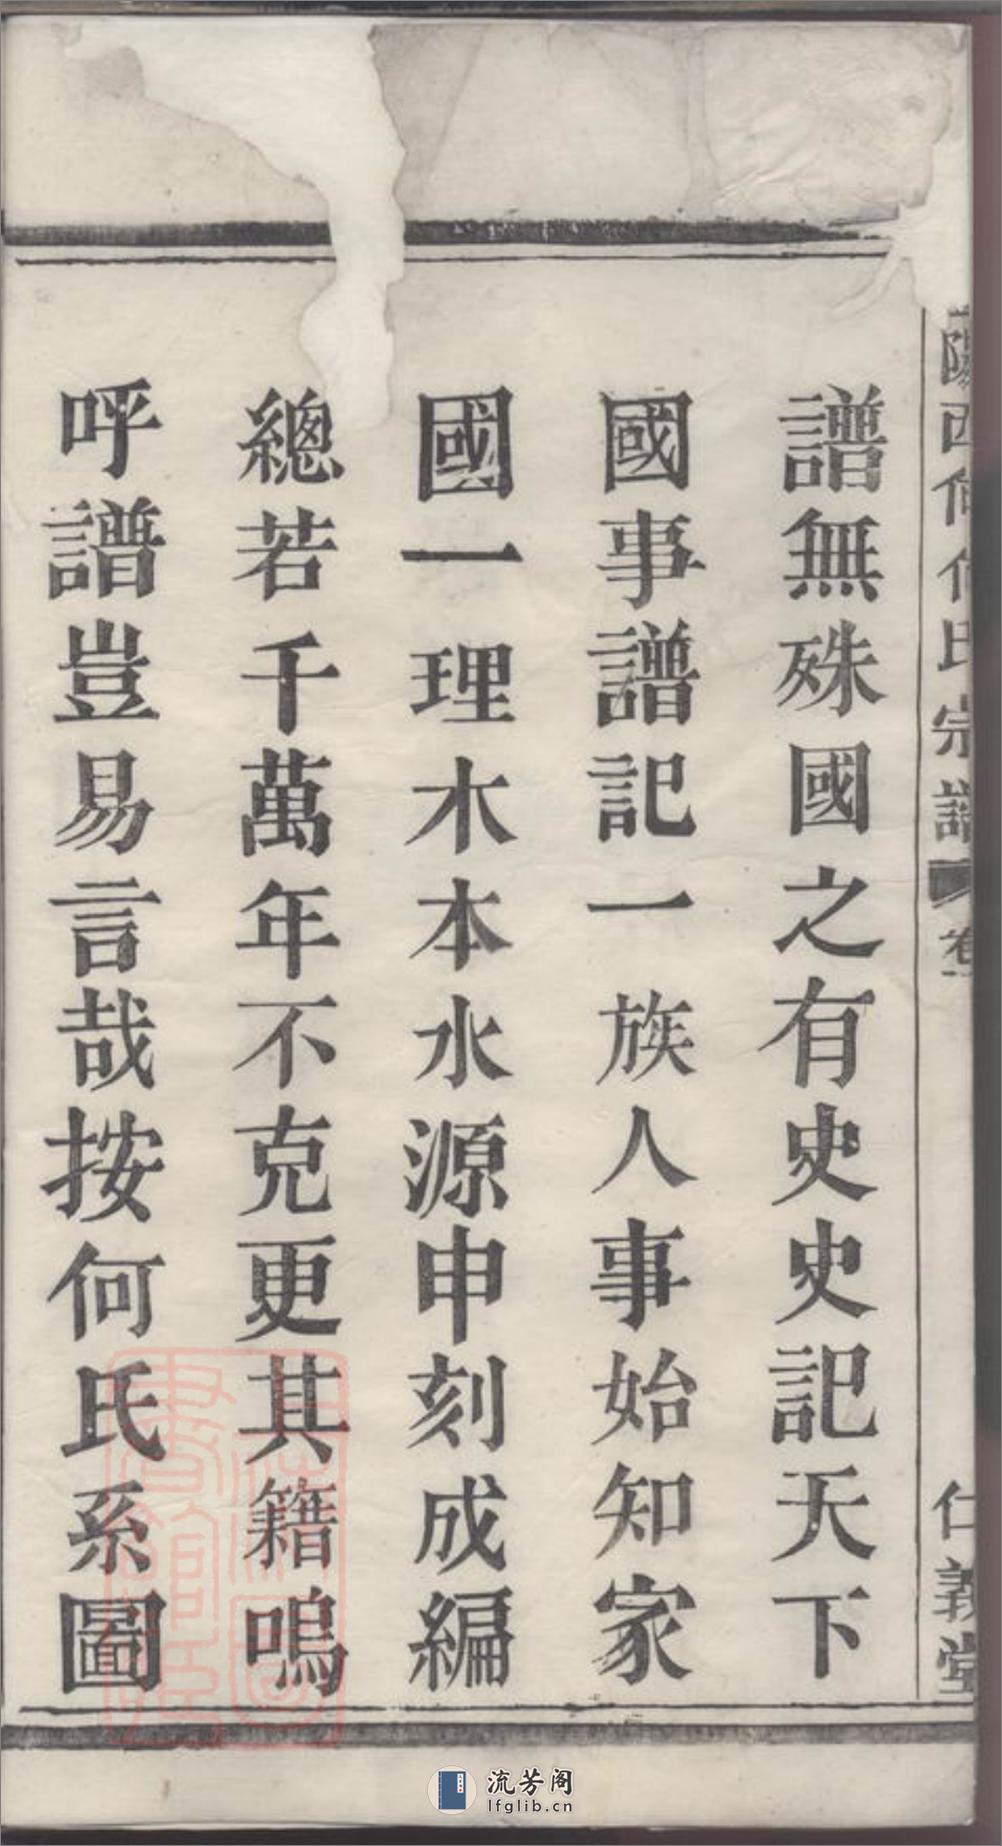 陽西何何氏宗譜 卷 仁義堂
譜無殊國之有史史記天下
國事譜記一族人事始知家
國一理木本水源申刻成編
總若千萬年不克更其籍嗚
呼譜豈易言哉按何氏系圖
流芳阁
lfglib.cn